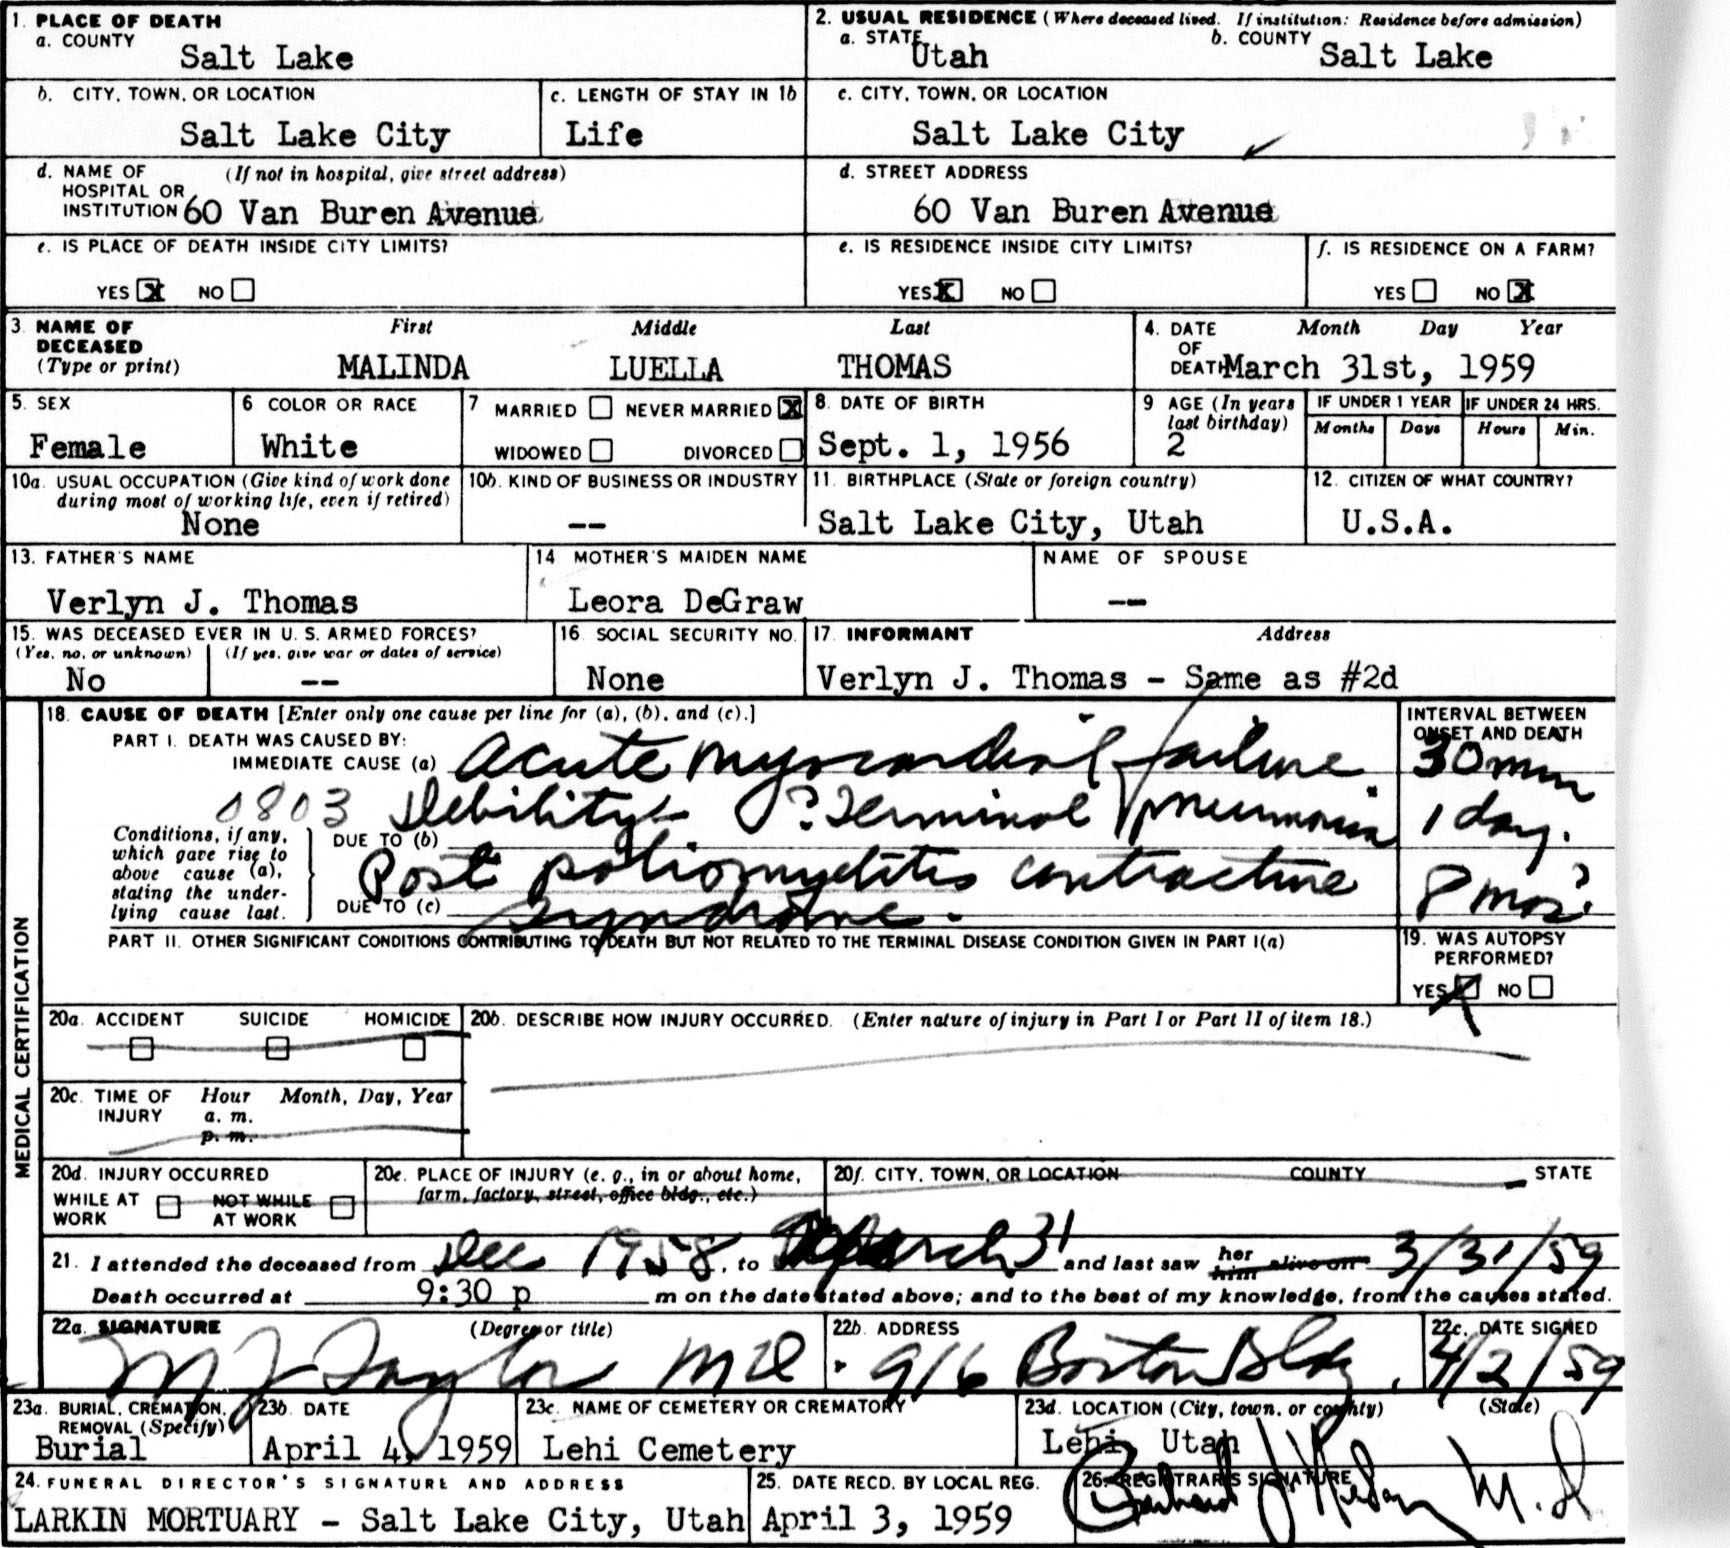 1. PLACE OF DEATH
a. COUNTY
Salt Lake
2. USUAL RESIDENCE (Where deceased lived. If institution: Residence before admission)
a. STATE Utah b. COUNTY Salt Lake
b. CITY, TOWN, OR LOCATION
Salt Lake City
c. LENGTH OF STAY IN 1b
Life
c. CITY, TOWN, OR LOCATION
Salt Lake City
d. NAME OF (If not in hospital, give street address)
HOSPITAL OR
INSTITUTION 60 Van Buren Avenue
d. STREET ADDRESS
60 Van Buren Avenue
e. IS PLACE OF DEATH INSIDE CITY LIMITS?
YES X NO
e. IS RESIDENCE INSIDE CITY LIMITS?
YES X NO
f. IS RESIDENCE ON A FARM?
YES NO X
3. NAME OF DECEASED (Type or print)
First Middle Last
MALINDA LUELLA THOMAS
4. DATE OF DEATH Month Day Year
March 31st, 1959
5. SEX
Female
6 COLOR OR RACE
White
7 MARRIED NEVER MARRIED X
WIDOWED DIVORCED
8. DATE OF BIRTH
Sept. 1, 1956
9 AGE (In years last birthday)
2
IF UNDER 1 YEAR IF UNDER 24 HRS.
Months Days Hours Min.
10a. USUAL OCCUPATION (Give kind of work done
during most of working life, even if retired)
None
10b. KIND OF BUSINESS OR INDUSTRY
--
11. BIRTHPLACE (State or foreign country)
Salt Lake City, Utah
12. CITIZEN OF WHAT COUNTRY?
U.S.A.
13. FATHER'S NAME
Verlyn J. Thomas
14 MOTHER'S MAIDEN NAME
Leora DeGraw
NAME OF SPOUSE
--
15. WAS DECEASED EVER IN U. S. ARMED FORCES?
(Yes, no, or unknown) (If yes, give war or dates of service)
No --
16. SOCIAL SECURITY NO.
None
17. INFORMANT Address
Verlyn J. Thomas - Same as #2d
MEDICAL CERTIFICATION
18. CAUSE OF DEATH [Enter only one cause per line for (a), (b), and (c).]
PART I. DEATH WAS CAUSED BY:
IMMEDIATE CAUSE (a) Acute myocardial failure
INTERVAL BETWEEN
ONSET AND DEATH
30 min
0803
Conditions, if any,
which gave rise to
above cause (a),
stating the under-
lying cause last.
DUE TO (b) Debility & ? Terminal pneumonia
1 day.
DUE TO (c) Post poliomyelitis contracture
syndrome.
8 mos?
PART II. OTHER SIGNIFICANT CONDITIONS CONTRIBUTING TO DEATH BUT NOT RELATED TO THE TERMINAL DISEASE CONDITION GIVEN IN PART I(a)
19. WAS AUTOPSY
PERFORMED?
YES X NO
20a. ACCIDENT SUICIDE HOMICIDE
20b. DESCRIBE HOW INJURY OCCURRED. (Enter nature of injury in Part I or Part II of item 18.)
20c. TIME OF INJURY Hour Month, Day, Year
a. m.
p. m.
20d. INJURY OCCURRED
WHILE AT WORK NOT WHILE AT WORK
20e. PLACE OF INJURY (e. g., in or about home,
farm, factory, street, office bldg., etc.)
20f. CITY, TOWN, OR LOCATION COUNTY STATE
21. I attended the deceased from Dec 1958, to March 31 and last saw her him alive on 3/31/59
Death occurred at 9:30 p m on the date stated above; and to the best of my knowledge, from the causes stated.
22a. SIGNATURE (Degree or title)
M J Taylor MD
22b. ADDRESS
916 Boston Bldg.
22c. DATE SIGNED
4/2/59
23a. BURIAL, CREMATION,
REMOVAL (Specify)
Burial
23b. DATE
April 4, 1959
23c. NAME OF CEMETERY OR CREMATORY
Lehi Cemetery
23d. LOCATION (City, town, or county) (State)
Lehi, Utah
24. FUNERAL DIRECTOR'S SIGNATURE AND ADDRESS
LARKIN MORTUARY - Salt Lake City, Utah
25. DATE RECD. BY LOCAL REG.
April 3, 1959
26. REGISTRAR'S SIGNATURE
M.D.